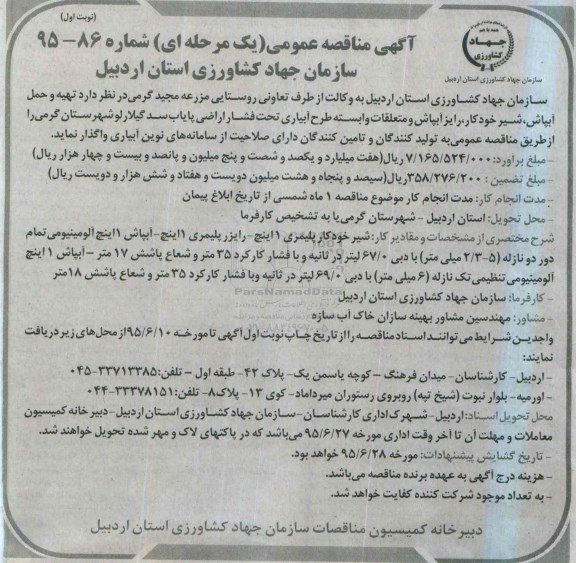 (نوبت اول)
جهاد
کشاورزی
سازمان جهاد کشاورزی استان اردبیل
آگهی مناقصه عمومی(یک مرحله ای) شماره ۸۶-۹۵
سازمان جهاد کشاورزی استان اردبیل
سازمان جهاد کشاورزی استان اردبیل به وکالت از طرف تعاونی روستایی مزرعه مجید گرمی در نظر دارد تهیه و حمل
آبپاش، شیر خودکار، رایزر آبپاش و متعلقات وابسته طرح آبیاری تحت فشار اراضی پایاب سد گیلارلو شهرستان گرمی را
از طریق مناقصه عمومی به تولید کنندگان و تامین کنندگان دارای صلاحیت از سامانه‌های نوین آبیاری واگذار نماید.
- مبلغ برآورد: ۷/۱۶۵/۵۲۴/۰۰۰ ریال(هفت میلیارد و یکصد و شصت و پنج میلیون و پانصد و بیست و چهار هزار ریال)
- مبلغ تضمین : ۳۵۸/۲۷۶/۲۰۰ریال(سیصد و پنجاه و هشت میلیون دویست و هفتاد و شش هزار و دویست ریال)
- مدت انجام کار: مدت انجام کار موضوع مناقصه ۱ ماه شمسی از تاریخ ابلاغ پیمان
- محل تحویل: استان اردبیل - شهرستان گرمی یا به تشخیص کارفرما
شرح مختصری از مشخصات و مقادیر کار: شیر خودکار پلیمری ۱ اینچ- رایزر پلیمری ۱اینچ- آبپاش ۱اینچ آلومینیومی تمام
دور دو نازله (۵-۲/۳ میلی متر) با دبی ۶۷/۰ لیتر در ثانیه و با فشار کارکرد ۳۵ متر و شعاع پاشش ۱۷ متر - آبپاش ۱ اینچ
آلومینیومی تنظیمی تک نازله (۶ میلی متر) با دبی ۶۹/۰ لیتر در ثانیه وبا فشار کارکرد ۳۵ متر و شعاع پاشش ۱۸متر
- کارفرما: سازمان جهاد کشاورزی استان اردبیل
- مشاور: مهندسین مشاور بهینه سازان خاک آب سازه
واجدین شرایط می توانند اسناد مناقصه را از تاریخ چاپ نوبت اول آگهی تا مورخه ۹۵/۶/۱۰ از محل‌های زیر دریافت
نمایند:
- اردبیل- کارشناسان- میدان فرهنگ - کوچه یاسمن یک- پلاک ۴۲- طبقه اول - تلفن:۳۳۷۱۳۳۸۵-۰۴۵
- اورمیه- بلوار نبوت (شیخ تپه) روبروی رستوران میرداماد- کوی ۱۳- پلاک۸- تلفن:۳۳۳۷۸۱۵۱-۰۴۴
محل تحویل اسناد: اردبیل- شهرک اداری کارشناسان- سازمان جهاد کشاورزی استان اردبیل- دبیر خانه کمیسیون
معاملات و مهلت آن تا آخر وقت اداری مورخه ۹۵/۶/۲۷ می‌باشد که در پاکتهای لاک و مهر شده تحویل خواهند شد.
- تاریخ گشایش پیشنهادات: مورخه ۹۵/۶/۲۸ خواهد بود.
- هزینه درج آگهی به عهده برنده مناقصه می‌باشد.
- به تعداد موجود شرکت کننده کفایت خواهد شد.
دبیر خانه کمیسیون مناقصات سازمان جهاد کشاورزی استان اردبیل
ParsNamadData